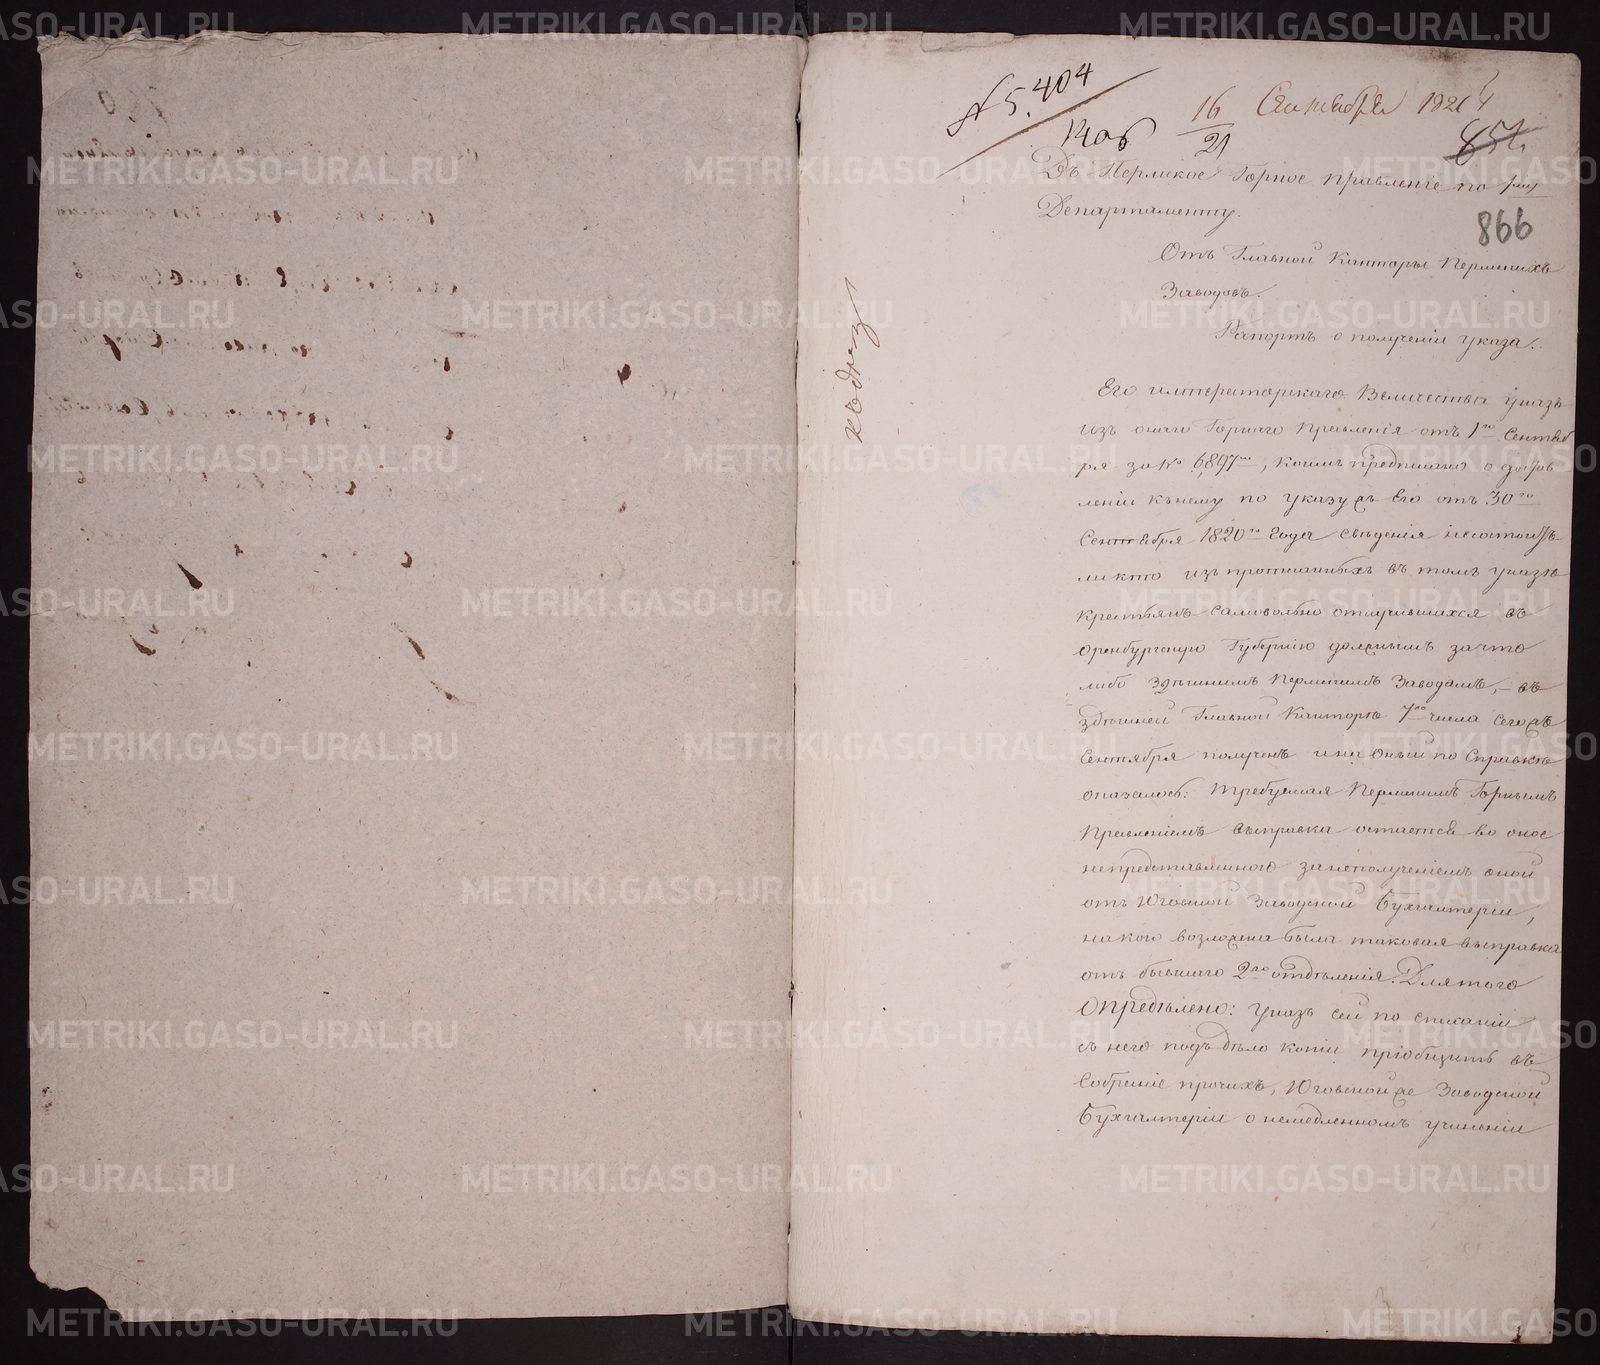 № 5.404
16 Сентября 1821
21
851
Въ Пермское Горное правленіе по 1му
Департаменту.
866
Отъ Главной Канторы Пермскихъ
Заводовъ.
Рапортъ о полученіи указа.
Его императорскаго Величества указъ
изъ онаго Горнаго Правленія отъ 1го Сентяб
ря за № 6,897мъ, коимъ предписано о достав
леніи къ нему по указу въ Его отъ 30го
Сентября 1820го года сведенія несостоитъ
ли кто изъ прописанныхъ въ томъ указе
крестьянъ самовольно отлучившихся въ
Оренбургскую Губернію должнымъ зачто
либо здешнимъ Пермскимъ Заводамъ, – въ
здешней Главной Канторе 7го числа сегожъ
Сентября полученъ и на оный по справке
оказалось: требуемая Пермскимъ Горнымъ
Правленіемъ выправка остается во оное
непредставленною занеполученіемъ оной
отъ Юговской Заводской Бухгалтеріи,
на кою возложена была таковая выправка
отъ бывшаго 2го отделенія. Для того
Определено: указъ сей по списаніи
съ него подъ дело копіи пріобщить въ
Собраніе прочихъ, Юговской же Заводской
Бухгалтеріи о немедленномъ учиненіи
METRIKI.GASO-URAL.RU